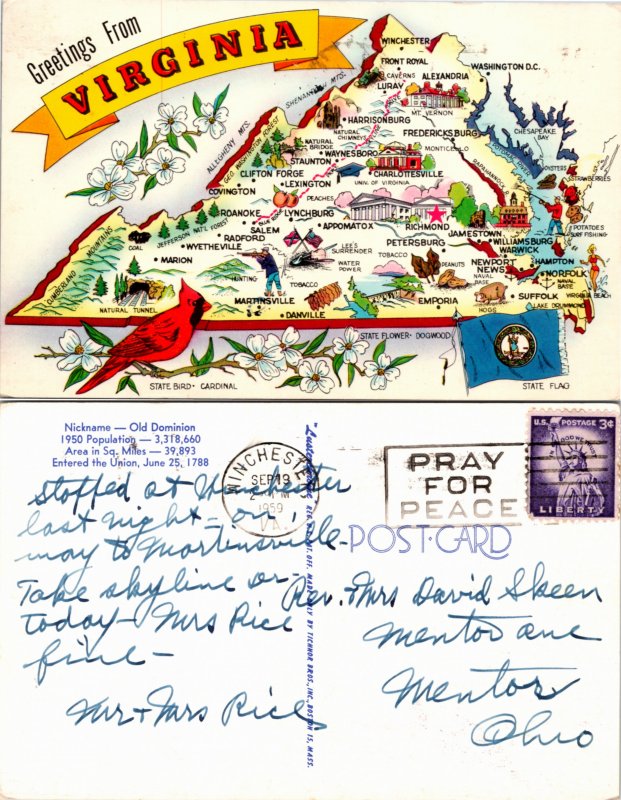 Greetings From
VIRGINIA
WINCHESTER
FRONT ROYAL
CAVERNS
ALEXANDRIA
WASHINGTON D.C.
LURAY
MT. VERNON
SHENANDOAH MTS.
HARRISONBURG
FREDERICKSBURG
CHESAPEAKE BAY
ALLEGHENY MTS.
GEO. WASHINGTON FOREST
NATURAL CHIMNEYS
NATURAL BRIDGE
WAYNESBORO
MONTICELLO
POTOMAC RIVER
STAUNTON
RAPPAHANNOCK R.
OYSTERS
CLIFTON FORGE
CHARLOTTESVILLE
STRAWBERRIES
LEXINGTON
UNIV. OF VIRGINIA
COVINGTON
PEACHES
ROANOKE
LYNCHBURG
RICHMOND
JAMESTOWN
POTATOES
SURF FISHING
SALEM
APPOMATOX
JEFFERSON NAT'L FOREST
RADFORD
PETERSBURG
WILLIAMSBURG
COAL
WYETHEVILLE
LEE'S SURRENDER
WARWICK
MARION
WATER POWER
TOBACCO
PEANUTS
NEWPORT NEWS
HAMPTON
CUMBERLAND MOUNTAINS
HUNTING
NAVAL BASE
NORFOLK
NAVAL BASE
TOBACCO
MARTINSVILLE
EMPORIA
SUFFOLK
VIRGINIA BEACH
NATURAL TUNNEL
DANVILLE
HOGS
LAKE DRUMMOND
STATE FLOWER - DOGWOOD
STATE BIRD - CARDINAL
STATE FLAG
Nickname — Old Dominion
1950 Population — 3,318,660
Area in Sq. Miles — 39,893
Entered the Union, June 25, 1788
WINCHESTER
SEP 19
PM
1959
VA.
PRAY
FOR
PEACE
U.S. POSTAGE 3¢
IN GOD WE TRUST
LIBERTY
POST CARD
stopped at Winchester
last night - on
way to Martensville-
Take skyline dr.
today - Mrs Rice
fine -
Mr + Mrs Rice
Rev. + Mrs David Skeen
Mentor ave
Mentor
Ohio
REG. U.S. PAT. OFF. MADE ONLY BY TICHNOR BROS., INC., BOSTON 15, MASS.